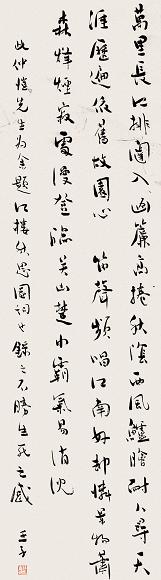 萬里長江排闥入幽簾高捲秋陰西風鱸膾耐人尋天
涯歷遍依舊故園心 笛聲頻唱江南好却憐景物蕭
森烽煙寂處漫登臨吳山楚水霸氣易消沈
此仲愷先生為余題江樓秋思圖詞也錄之不勝生死之感